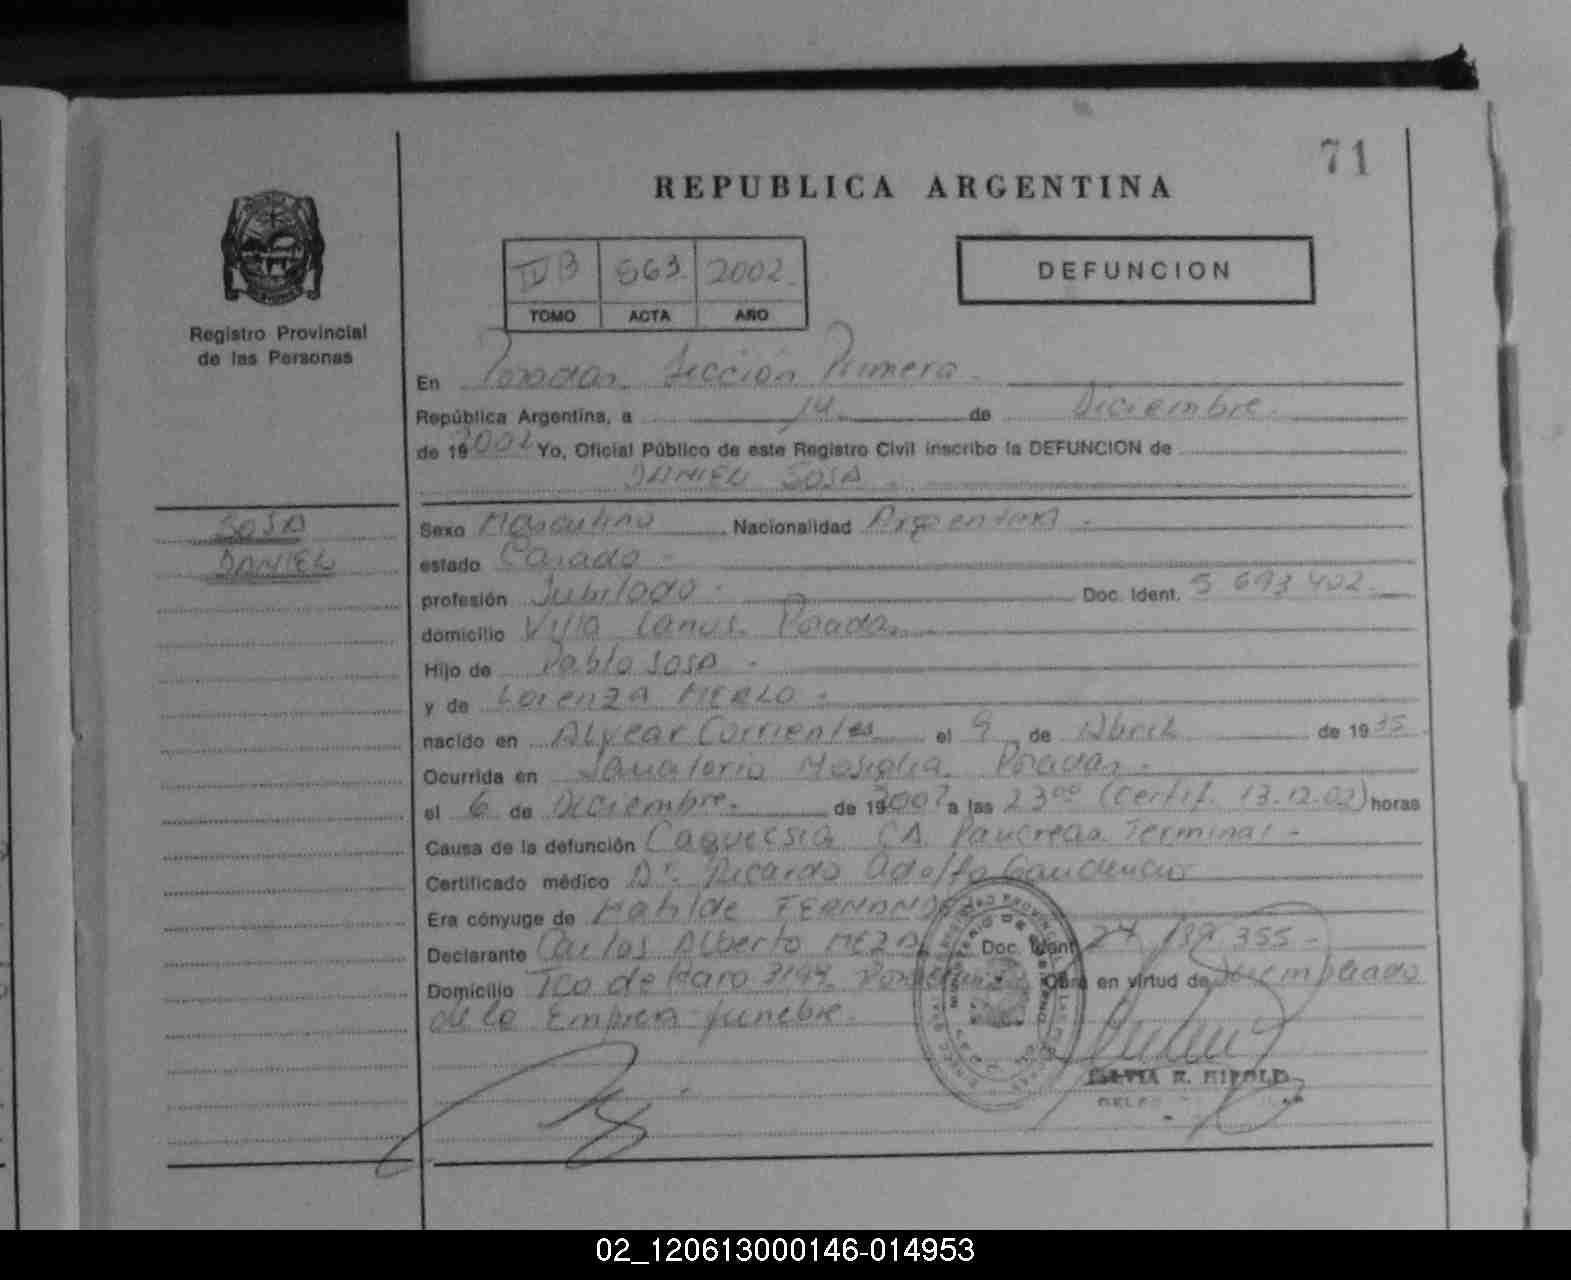 71
REPUBLICA ARGENTINA
IVB 563 2002
TOMO ACTA AÑO
DEFUNCION
Registro Provincial
de las Personas
En Posadas Sección Primera
República Argentina, a 14 de Diciembre
de 19 2002 Yo, Oficial Público de este Registro Civil inscribo la DEFUNCION de
DANIEL SOSA
SOSA
DANIEL
Sexo Masculino Nacionalidad Argentina
estado Casado
profesión Jubilado Doc. Ident. 5 693 402
domicilio Villa Lanus Posadas
Hijo de Pablo SOSA
y de Lorenza MERLO
nacido en Alvear Corrientes el 9 de Abril de 1935
Ocurrida en Sanatorio Posadas
el 6 de Diciembre de 19 2002 a las 23 00 (Certif. 13.12.02) horas
Causa de la defunción CA Pancreas Terminal
Certificado médico Dr. Ricardo Adolfo
Era cónyuge de Matilde
Declarante Carlos Alberto MEZA Doc. Ident 24 139 355
Domicilio Tco de Haro Obra en virtud de Ser empleado
de la Empresa funebre.
02_120613000146-014953